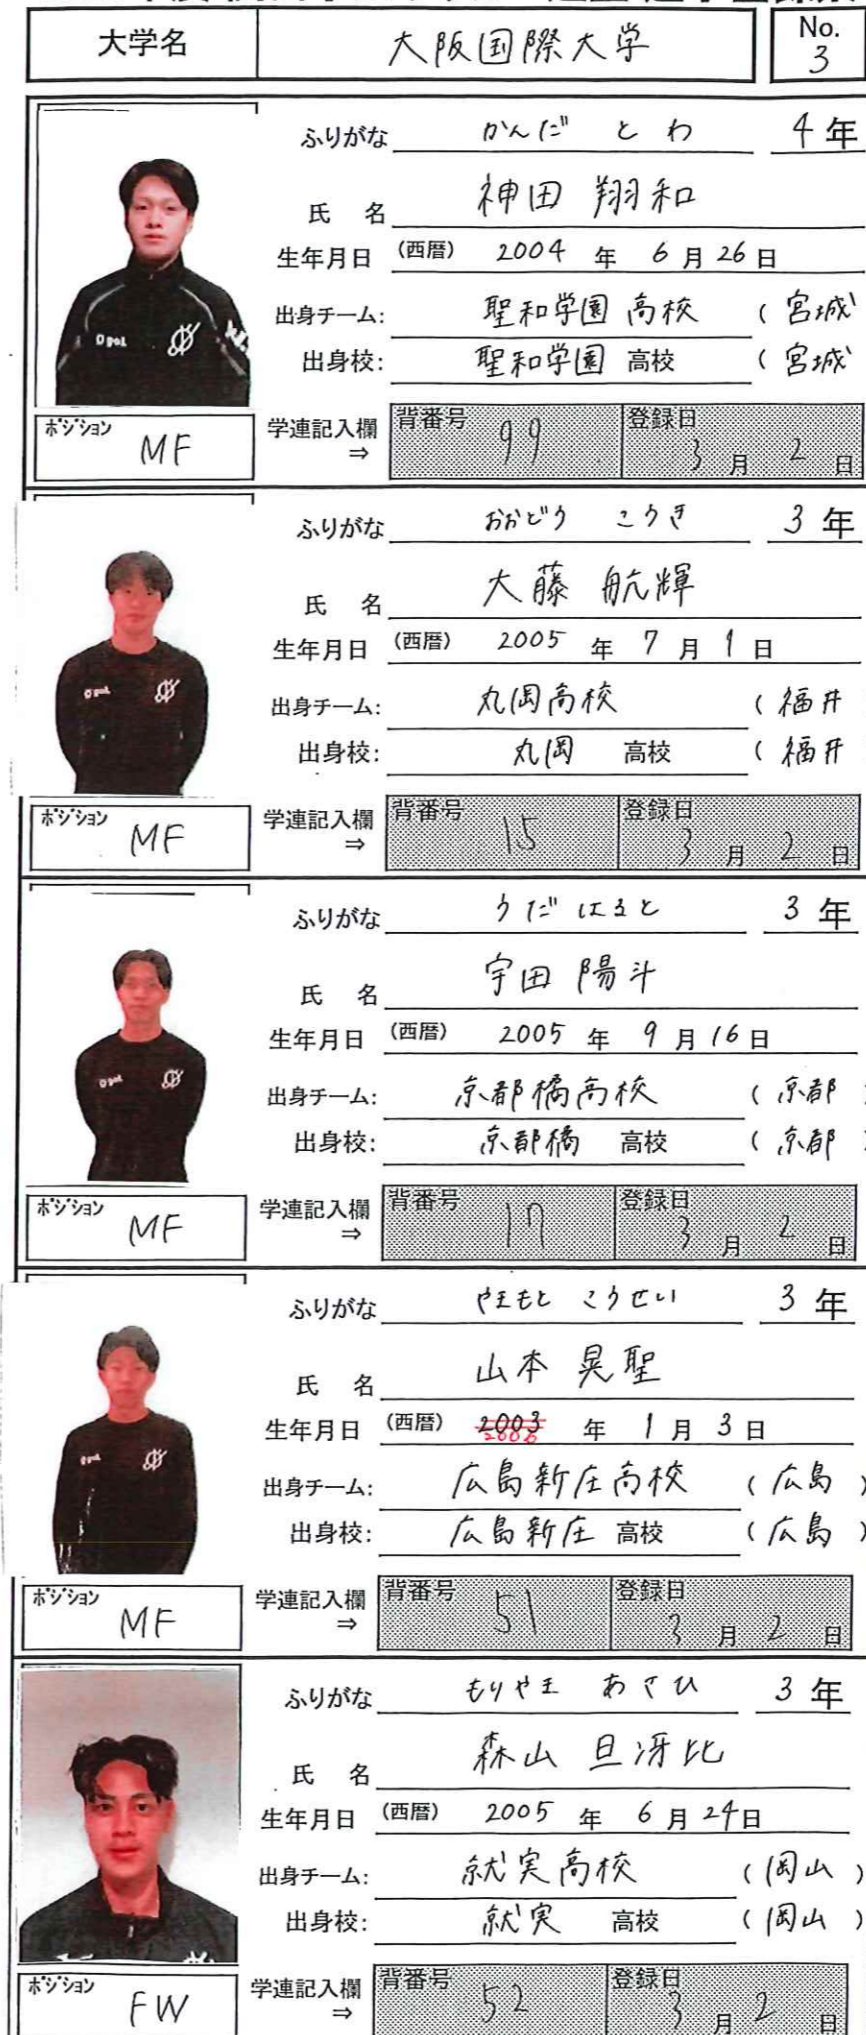 大学名 大阪国際大学 No. 3
ふりがな かんだ とわ 4年
氏名 神田 翔和
生年月日 (西暦) 2004 年 6 月 26 日
出身チーム: 聖和学園高校 (宮城
出身校: 聖和学園 高校 (宮城
ポジション MF 学連記入欄 ⇒ 背番号 99 登録日 3 月 2 日
ふりがな おおどう こうき 3年
氏名 大藤 航輝
生年月日 (西暦) 2005 年 7 月 1 日
出身チーム: 丸岡高校 (福井
出身校: 丸岡 高校 (福井
ポジション MF 学連記入欄 ⇒ 背番号 15 登録日 3 月 2 日
ふりがな うだ はると 3年
氏名 宇田 陽斗
生年月日 (西暦) 2005 年 9 月 16 日
出身チーム: 京都橘高校 (京都
出身校: 京都橘 高校 (京都
ポジション MF 学連記入欄 ⇒ 背番号 17 登録日 3 月 2 日
ふりがな やまもと こうせい 3年
氏名 山本 晃聖
生年月日 (西暦) 2003 年 1 月 3 日
出身チーム: 広島新庄高校 (広島)
出身校: 広島新庄 高校 (広島)
ポジション MF 学連記入欄 ⇒ 背番号 51 登録日 3 月 2 日
ふりがな もりやま あさひ 3年
氏名 森山 旦冴比
生年月日 (西暦) 2005 年 6 月 24日
出身チーム: 就実高校 (岡山)
出身校: 就実 高校 (岡山)
ポジション FW 学連記入欄 ⇒ 背番号 52 登録日 3 月 2 日